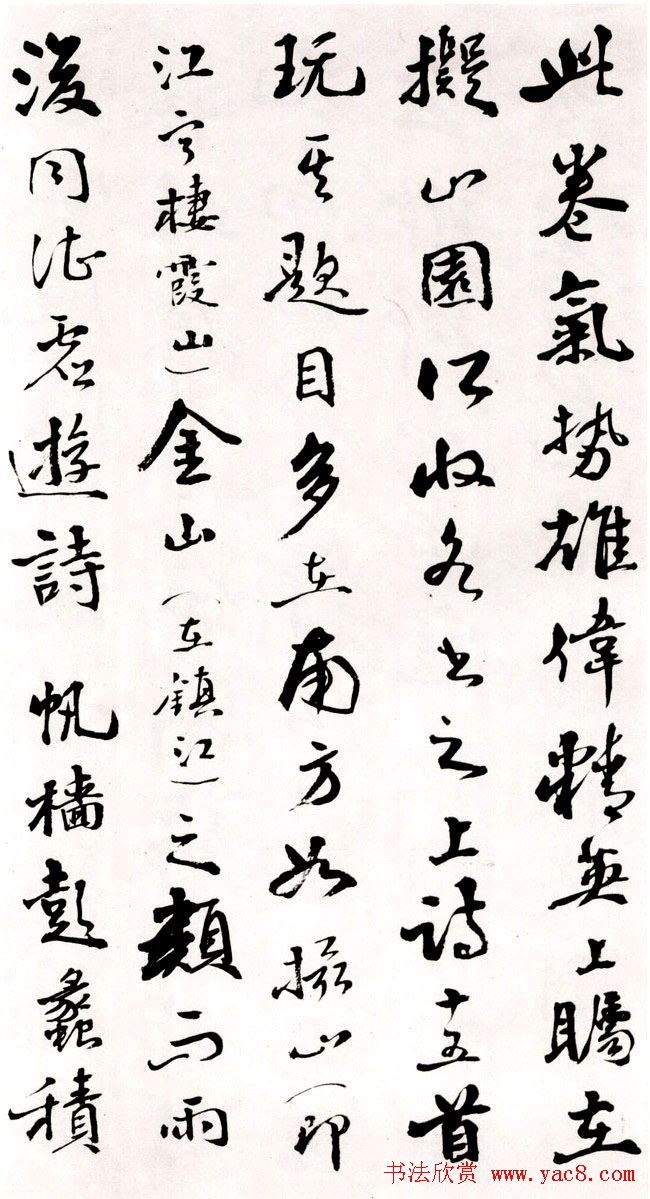 此卷氣势雄偉精英上矚在
擬山園所收各书之上詩十五首
玩其題目多在南方如攝山(即
江宁棲霞山)金山(在鎮江)之類而雨
後同虚遊詩 帆檣彭蠡積
书法欣赏 www.yac8.com